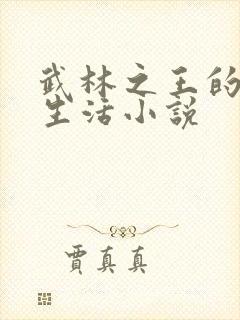 武林之王的
生活小说
贾真真